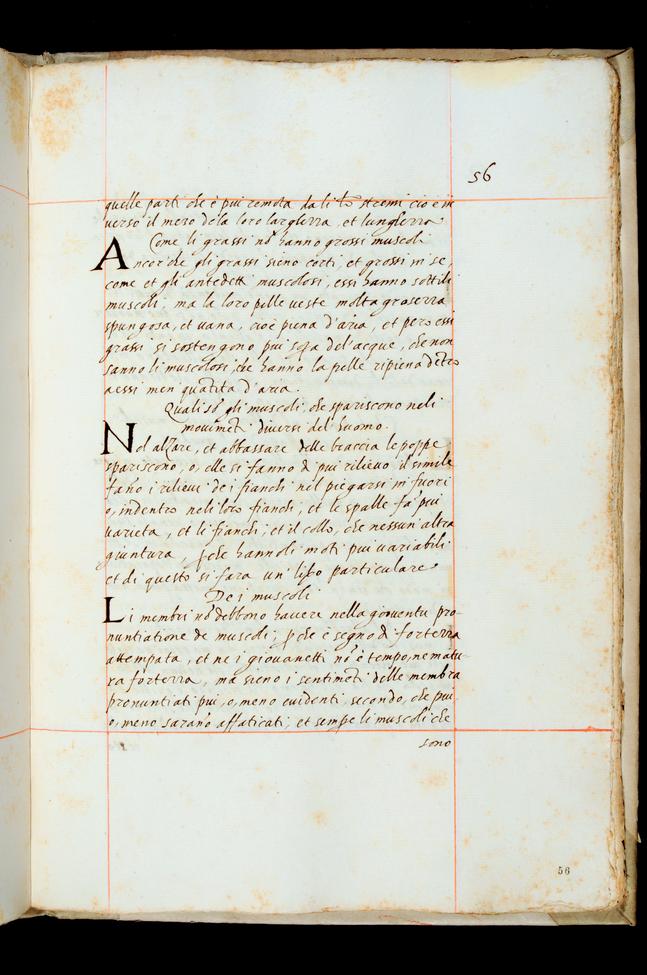 56
quelle parti che è piu remota da li lo͂ stremi cio è in
verso il mezo dela loro larghezza, et lunghezza
Come li grassi no͂ hanno grossi muscoli
Ancor'che gli grassi sieno corti, et grossi in se,
come et gli antedetti muscolosi, essi hanno sottili
muscoli, ma la loro pelle veste molta grosezza
spungosa, et vana, cioè piena d'aria, et però essi
grassi si sostengono piu sop̃a del'acque, che non
fanno li muscolosi, che hanno la pelle ripiena de͂tro
a essi men qua͂tita d'aria.
Quali so͂ gli muscoli, che spariscono neli
movime͂ti diversi del huomo.
Nel alzare, et abbassare delle braccia le poppe
spariscono, o, elle si fanno di piu rilievo il simile
fan͂o i rilievi de i fianchi nel piegarsi in fuori
o, indentro neli loro fianchi, et le spalle fa͂ piu
varieta, et li fianchi, et il collo, che nessun'altra
giuntura, p̃che hannoli moti piu variabili
et di questo si fara un'lib͂o particulare
De i muscoli
Li membri no͂ debbono havere nella gioventu pro-
nuntiatione de muscoli, p̃che è segno di fortezza
attempata, et ne i giovanetti no͂ è tempo, ne matu-
ra fortezza, ma sieno i sentime͂ti delle membra
pronuntiati piu, o, meno evidenti, secondo, che piu
o, meno saran͂o affaticati, et semp̃e li muscoli che
sono
56